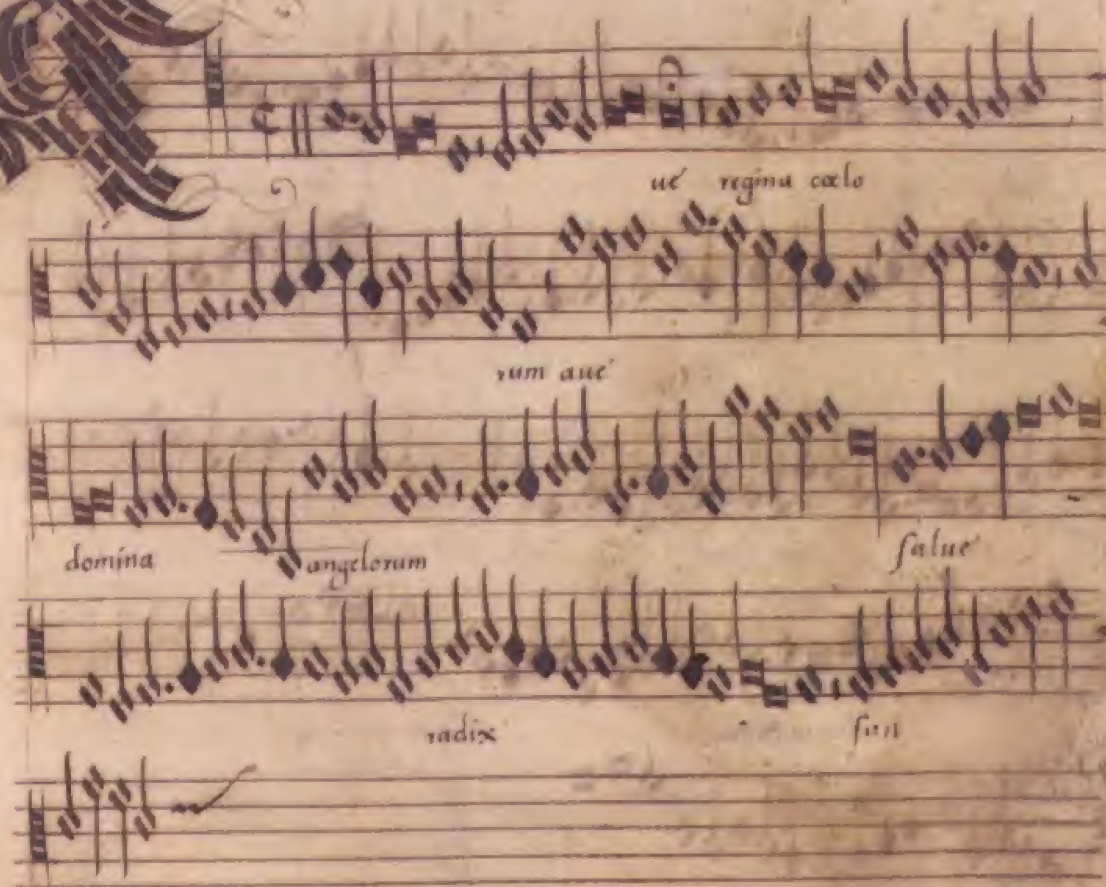 ué regina cœlo
rum aué
domina angelorum salué
radix san